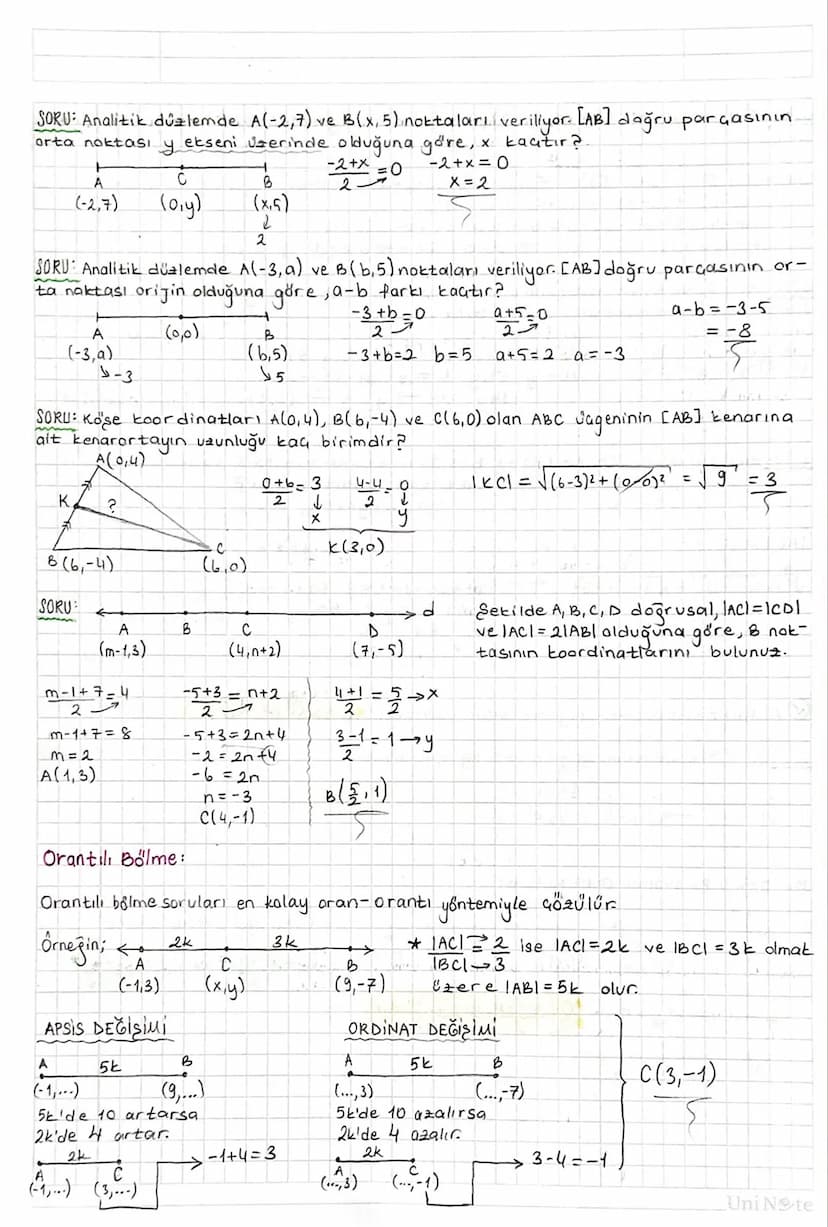 SORU: Analitik düzlemde A(-2,7) ve B(x,5) noktaları veriliyor. [AB] doğru parçasının
orta noktası y ekseni üzerinde olduğuna göre, x kaçtır?
A C B
(-2,7) (0,y) (x,5)
2
-2+x/2 = 0
-2+x = 0
x = 2
SORU: Analitik düzlemde A(-3,a) ve B(b,5) noktaları veriliyor. [AB] doğru parçasının or-
ta noktası orijin olduğuna göre, a-b farkı kaçtır?
A (0,0) B
(-3,a) (b,5)
-3 5
-3+b/2 = 0 a+5/2 = 0
-3+b=2 b=5 a+5=2 a=-3
a-b = -3-5
= -8
SORU: Köşe koordinatları A(0,4), B(6,-4) ve C(6,0) olan ABC üçgeninin [AB] kenarına
ait kenarortayın uzunluğu kaç birimdir?
A(0,4)
K ?
C
B(6,-4) (6,0)
0+6/2 = 3 4-4/2 = 0
x y
K(3,0)
|KC| = √(6-3)²+(0-0)² = √9 = 3
SORU:
d
A B C D
(m-1,3) (4,n+2) (7,-5)
Şekilde A, B, C, D doğrusal, |AC|=|CD|
ve |AC|=2|AB| olduğuna göre, B nok-
tasının koordinatlarını bulunuz.
m-1+7/2 = 4
m-1+7 = 8
m=2
A(1,3)
-5+3/2 = n+2
-5+3=2n+4
-2=2n+4
-6 = 2n
n=-3
C(4,-1)
4+1/2 = 5/2 → x
3-1/2 = 1 → y
B(5/2, 1)
Orantılı Bölme:
Orantılı bölme soruları en kolay oran-orantı yöntemiyle çözülür.
Örneğin; 2k 3k
A C B
(-1,3) (x,y) (9,-7)
* |AC|/|BC| = 2/3 ise |AC|=2k ve |BC|=3k olmak
üzere |AB|=5k olur.
APSİS DEĞİŞİMİ
A 5k B
(-1,...) (9,...)
5k'de 10 artarsa
2k'de 4 artar.
2k
A C
(-1,...) (3,...)
→ -1+4=3
ORDİNAT DEĞİŞİMİ
A 5k B
(...,3) (...,-7)
5k'de 10 azalırsa
2k'de 4 azalır.
2k
A C
(...,3) (...,-1)
→ 3-4=-1
C(3,-1)
UniNote